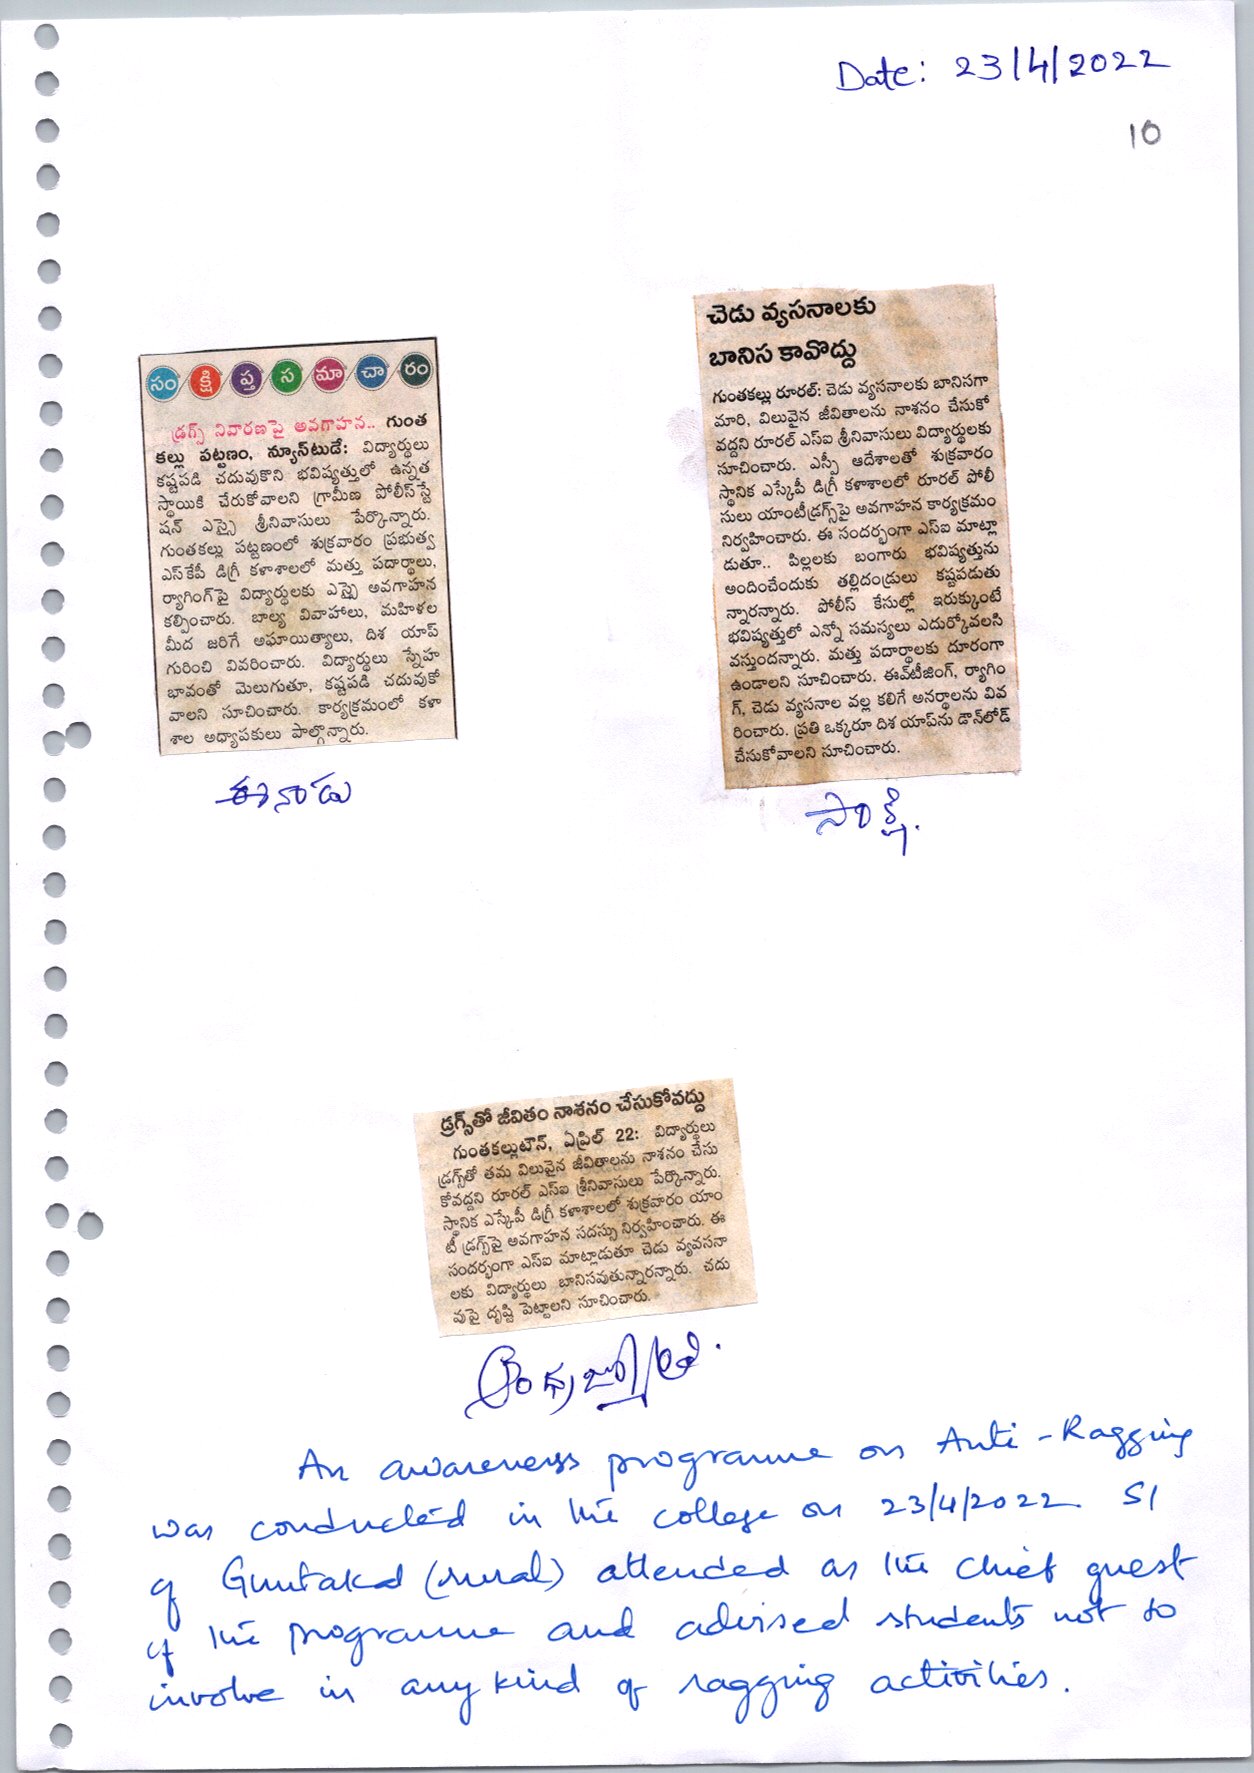 Date: 23/4/2022
10
సంక్షిప్త సమాచారం
డ్రగ్స్ నివారణపై అవగాహన.. గుంత
కల్లు పట్టణం, న్యూస్‌టుడే: విద్యార్థులు
కష్టపడి చదువుకొని భవిష్యత్తులో ఉన్నత
స్థాయికి చేరుకోవాలని గ్రామీణ పోలీస్‌స్టే
షన్ ఎస్సై శ్రీనివాసులు పేర్కొన్నారు.
గుంతకల్లు పట్టణంలో శుక్రవారం ప్రభుత్వ
ఎస్‌కేపీ డిగ్రీ కళాశాలలో మత్తు పదార్థాలు,
ర్యాగింగ్‌పై విద్యార్థులకు ఎస్సై అవగాహన
కల్పించారు. బాల్య వివాహాలు, మహిళల
మీద జరిగే అఘాయిత్యాలు, దిశ యాప్
గురించి వివరించారు. విద్యార్థులు స్నేహ
భావంతో మెలుగుతూ, కష్టపడి చదువుకో
వాలని సూచించారు. కార్యక్రమంలో కళా
శాల అధ్యాపకులు పాల్గొన్నారు.
ఈనాడు
చెడు వ్యసనాలకు
బానిస కావొద్దు
గుంతకల్లు రూరల్: చెడు వ్యసనాలకు బానిసగా
మారి, విలువైన జీవితాలను నాశనం చేసుకో
వద్దని రూరల్ ఎస్ఐ శ్రీనివాసులు విద్యార్థులకు
సూచించారు. ఎస్పీ ఆదేశాలతో శుక్రవారం
స్థానిక ఎస్కేపీ డిగ్రీ కళాశాలలో రూరల్ పోలీ
సులు యాంటీడ్రగ్స్‌పై అవగాహన కార్యక్రమం
నిర్వహించారు. ఈ సందర్భంగా ఎస్ఐ మాట్లా
డుతూ.. పిల్లలకు బంగారు భవిష్యత్తును
అందించేందుకు తల్లిదండ్రులు కష్టపడుతు
న్నారన్నారు. పోలీస్ కేసుల్లో ఇరుక్కుంటే
భవిష్యత్తులో ఎన్నో సమస్యలు ఎదుర్కోవలసి
వస్తుందన్నారు. మత్తు పదార్థాలకు దూరంగా
ఉండాలని సూచించారు. ఈవ్‌టీజింగ్, ర్యాగిం
గ్, చెడు వ్యసనాల వల్ల కలిగే అనర్థాలను వివ
రించారు. ప్రతి ఒక్కరూ దిశ యాప్‌ను డౌన్‌లోడ్
చేసుకోవాలని సూచించారు.
సాక్షి.
డ్రగ్స్‌తో జీవితం నాశనం చేసుకోవద్దు
గుంతకల్లుటౌన్, ఏప్రిల్ 22: విద్యార్థులు
డ్రగ్స్‌తో తమ విలువైన జీవితాలను నాశనం చేసు
కోవద్దని రూరల్ ఎస్ఐ శ్రీనివాసులు పేర్కొన్నారు.
స్థానిక ఎస్కేపీ డిగ్రీ కళాశాలలో శుక్రవారం యాం
టీ డ్రగ్స్‌పై అవగాహన సదస్సు నిర్వహించారు. ఈ
సందర్భంగా ఎస్ఐ మాట్లాడుతూ చెడు వ్యవసనా
లకు విద్యార్థులు బానిసవుతున్నారన్నారు. చదు
వుపై దృష్టి పెట్టాలని సూచించారు.
ఆంధ్రజ్యోతి.
An awareness programme on Anti-Ragging
was conducted in the college on 23/4/2022. SI
of Guntakal (rural) attended as the chief guest
of the programme and advised students not to
involve in any kind of ragging activities.